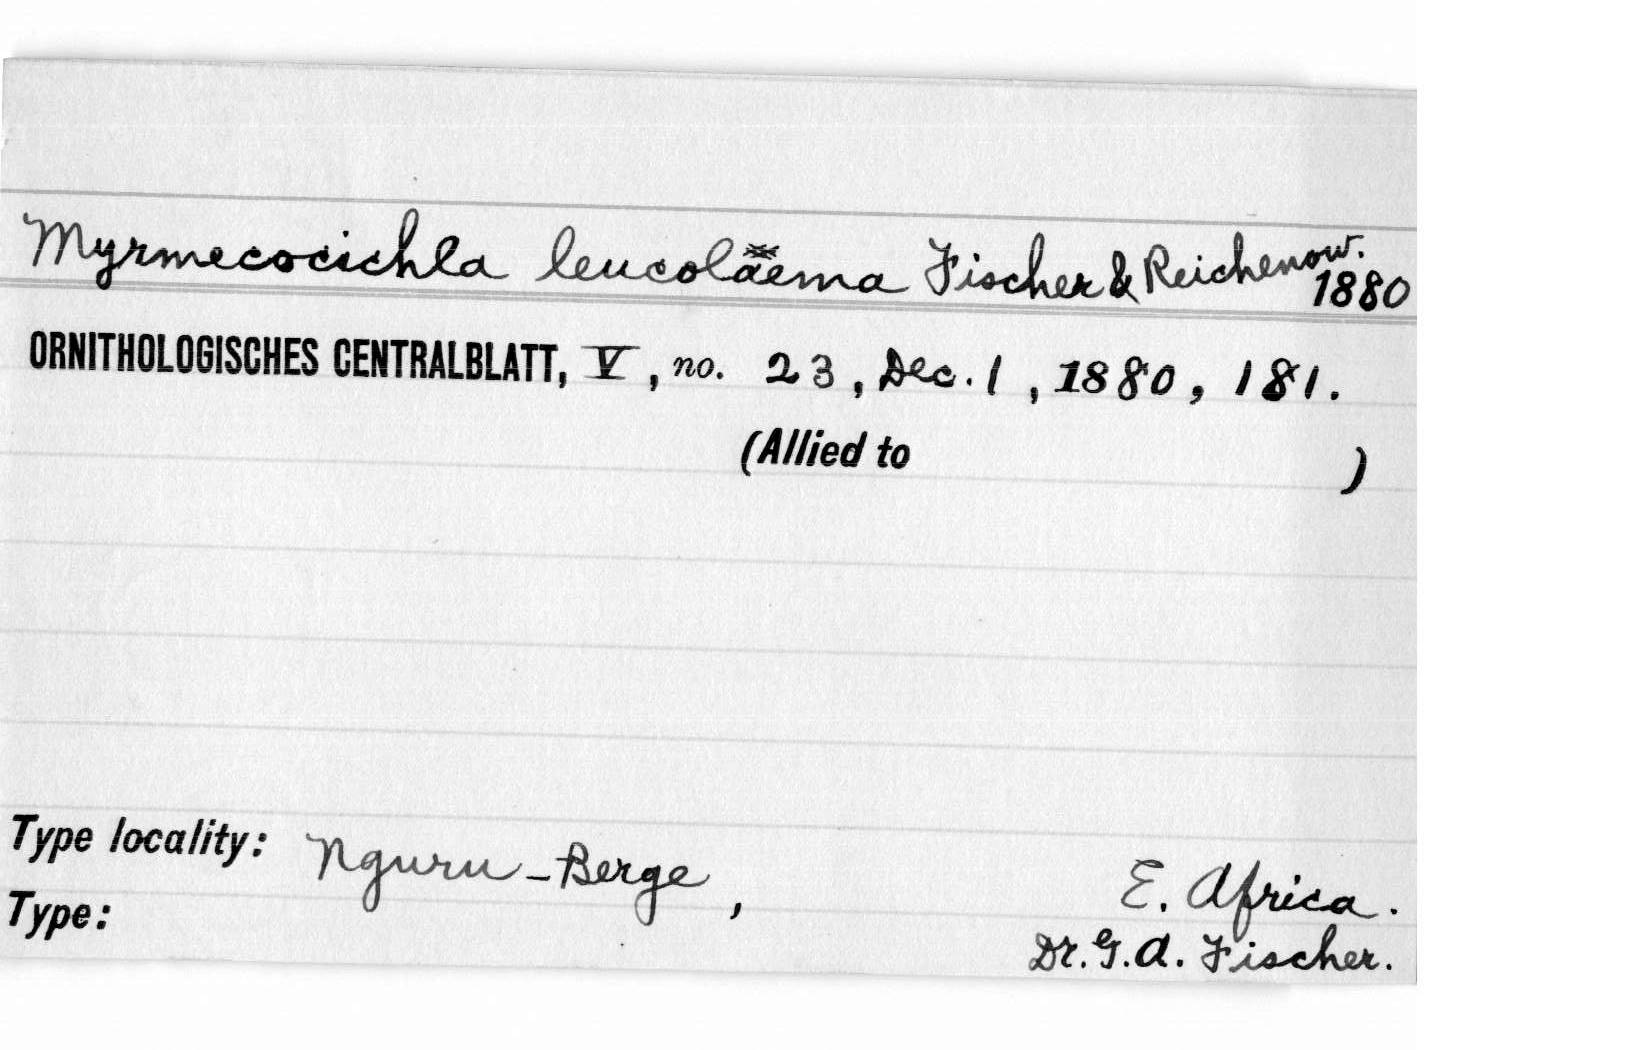 Myrmecocichla leucolaema Fischer & Reichenow.
1880
ORNITHOLOGISCHES CENTRALBLATT, V, no. 23, Dec. 1, 1880, 181.
(Allied to )
Type locality: Nguru-Berge, E. Africa.
Type: Dr. G. A. Fischer.